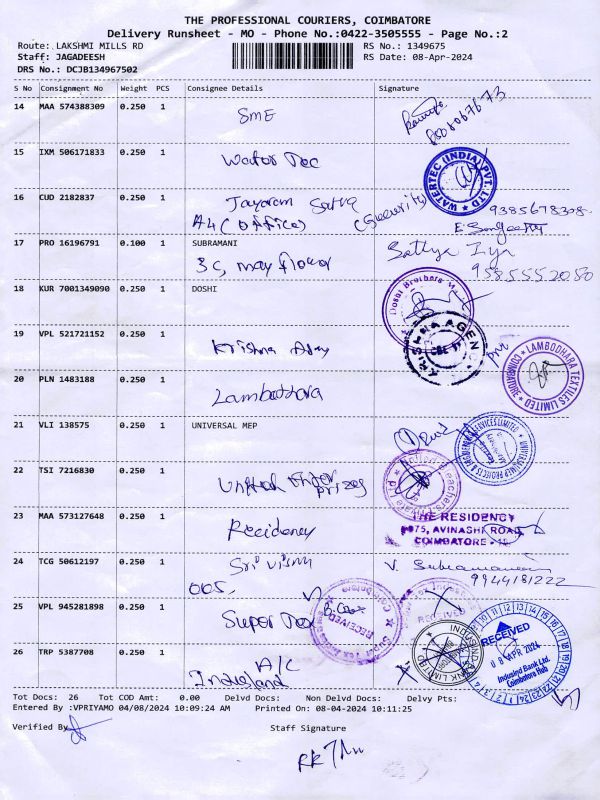 THE PROFESSIONAL COURIERS, COIMBATORE
Delivery Runsheet - MO - Phone No.:0422-3505555 - Page No.:2
Route: LAKSHMI MILLS RD
Staff: JAGADEESH
DRS No.: DCJB134967502
RS No.: 1349675
RS Date: 08-Apr-2024
S No Consignment No Weight PCS Consignee Details Signature
14 MAA 574388309 0.250 1 SME
15 IXM 506171833 0.250 1 Water Tec
WATERTEC (INDIA) PVT. LTD
16 CUD 2182837 0.250 1 Jayaram
A4 (office) (Security)
17 PRO 16196791 0.100 1 SUBRAMANI
3C, may flower
18 KUR 7001349090 0.250 1 DOSHI
19 VPL 521721152 0.250 1 Krishna
20 PLN 1483188 0.250 1 Lambodhara
LAMBODHARA TEXTILES LIMITED
COIMBATORE
21 VLI 138575 0.250 1 UNIVERSAL MEP
UNIVERSAL MEP PROJECTS & SERVICES LIMITED
22 TSI 7216830 0.250 1 United Enter
prizes
23 MAA 573127648 0.250 1 Recidency
THE RESIDENCY
AVINASHI ROAD
COIMBATORE
24 TCG 50612197 0.250 1 Sri
005.
9944181222
25 VPL 945281898 0.250 1 Super Tex
RECEIVED
RECEIVED
26 TRP 5387708 0.250 1 A/C
Indusland
RECEIVED
08 APR 2024
Indusind Bank Ltd.
Coimbatore Hub
Tot Docs: 26 Tot COD Amt: 0.00 Delvd Docs: Non Delvd Docs: Delvy Pts:
Entered By :VPRIYAMO 04/08/2024 10:09:24 AM Printed On: 08-04-2024 10:11:25
Verified By
Staff Signature